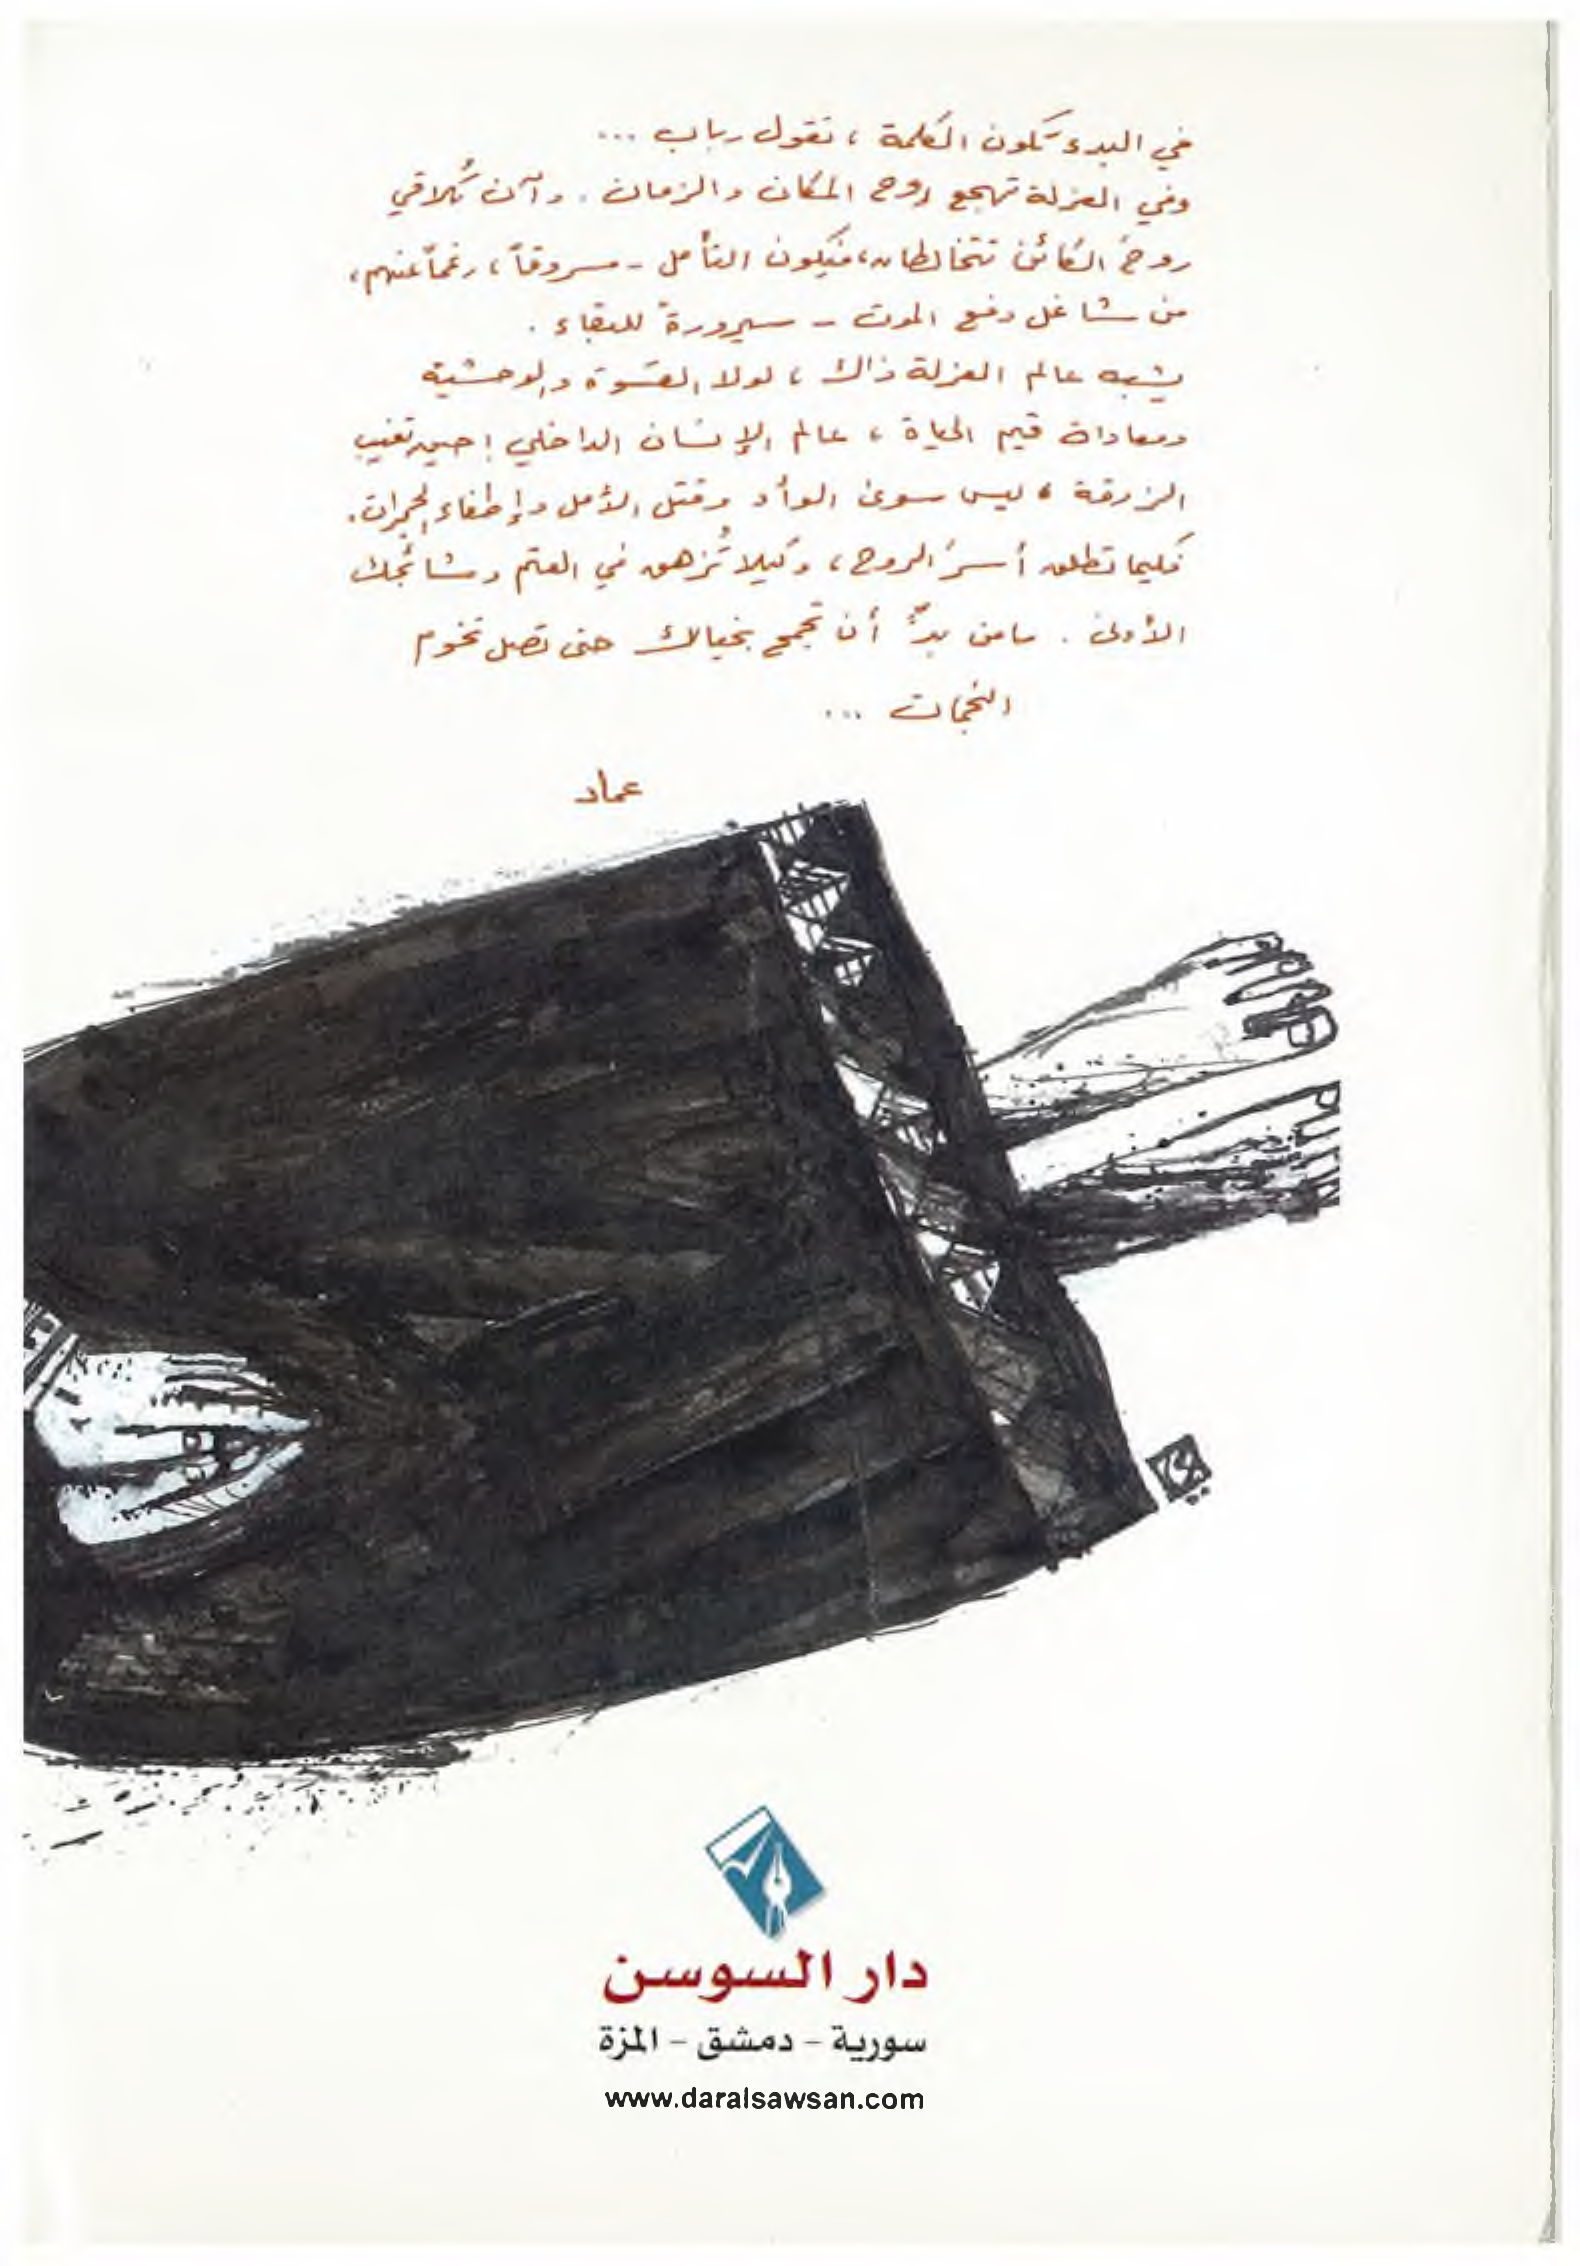 في البدء تكون الكلمة ، تقول رباب ...
وفي العزلة تهجع روح المكان والزمان . وآن تُلاقي
روحُ الكائن تتخالطان، فيكون التأمل - مسروقاً ، رغماً عنهم ،
من مشاغل دفع الموت - سيرورةً للبقاء .
يشبه عالم العزلة ذاك ، لولا القسوة والوحشية
ومعاداة قيم الحياة ، عالم الإنسان الداخلي ! حين تغيب
الزرقة ، ليس سوى الوأد وقتل الأمل وإطفاء الجمرات .
فكيما تطلق أسرُ الروح ، وكيلا تُزهق في العتم وشائجك
الأولى . ما من بدٍّ أن تجمح بخيالك حتى تصل تخوم
النجمات ...
عماد
دار السوسن
سورية - دمشق - المزة
www.daralsawsan.com